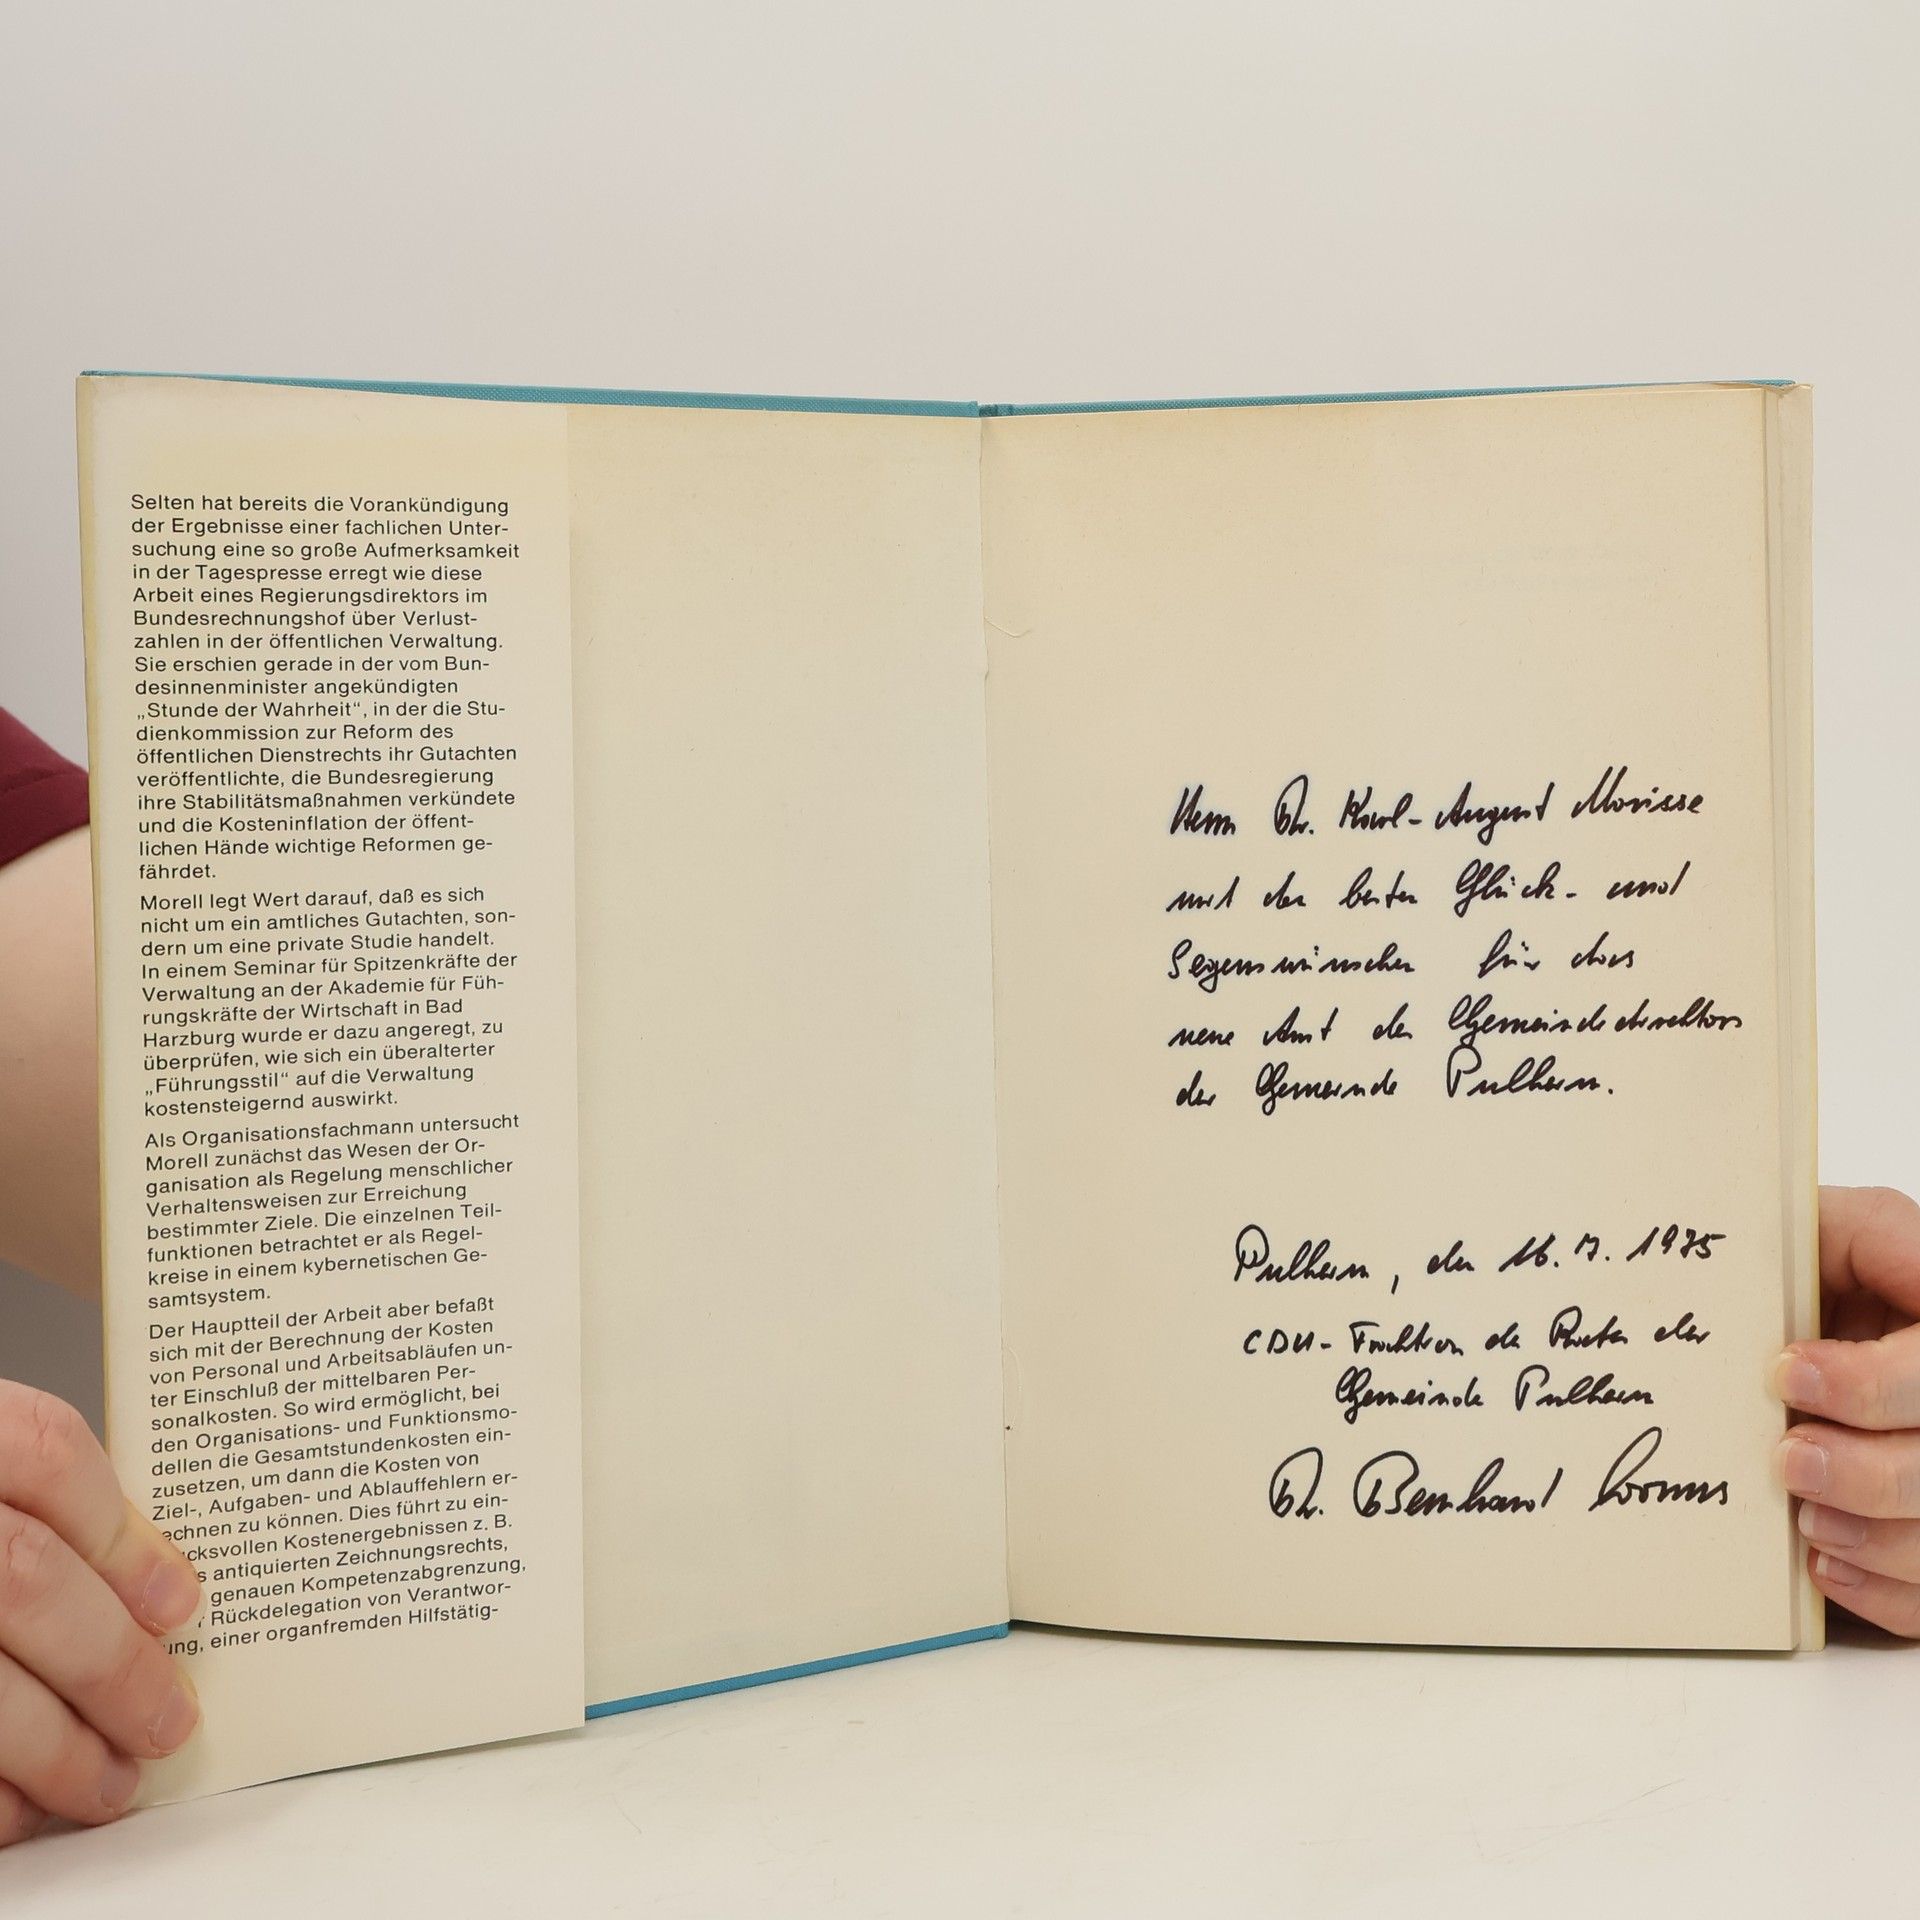 Selten hat bereits die Vorankündigung
der Ergebnisse einer fachlichen Unter-
suchung eine so große Aufmerksamkeit
in der Tagespresse erregt wie diese
Arbeit eines Regierungsdirektors im
Bundesrechnungshof über Verlust-
zahlen in der öffentlichen Verwaltung.
Sie erschien gerade in der vom Bun-
desinnenminister angekündigten
„Stunde der Wahrheit“, in der die Stu-
dienkommission zur Reform des
öffentlichen Dienstrechts ihr Gutachten
veröffentlichte, die Bundesregierung
ihre Stabilitätsmaßnahmen verkündete
und die Kosteninflation der öffent-
lichen Hände wichtige Reformen ge-
fährdet.
Morell legt Wert darauf, daß es sich
nicht um ein amtliches Gutachten, son-
dern um eine private Studie handelt.
In einem Seminar für Spitzenkräfte der
Verwaltung an der Akademie für Füh-
rungskräfte der Wirtschaft in Bad
Harzburg wurde er dazu angeregt, zu
überprüfen, wie sich ein überalterter
„Führungsstil“ auf die Verwaltung
kostensteigernd auswirkt.
Als Organisationsfachmann untersucht
Morell zunächst das Wesen der Or-
ganisation als Regelung menschlicher
Verhaltensweisen zur Erreichung
bestimmter Ziele. Die einzelnen Teil-
funktionen betrachtet er als Regel-
kreise in einem kybernetischen Ge-
samtsystem.
Der Hauptteil der Arbeit aber befaßt
sich mit der Berechnung der Kosten
von Personal und Arbeitsabläufen un-
ter Einschluß der mittelbaren Per-
sonalkosten. So wird ermöglicht, bei
den Organisations- und Funktionsmo-
dellen die Gesamtstundenkosten ein-
zusetzen, um dann die Kosten von
Ziel-, Aufgaben- und Ablauffehlern er-
echnen zu können. Dies führt zu ein-
cksvollen Kostenergebnissen z. B.
s antiquierten Zeichnungsrechts,
genauen Kompetenzabgrenzung,
r Rückdelegation von Verantwor-
ung, einer organfremden Hilfstätig-
Herrn Dr. Karl-August Morisse
mit den besten Glück- und
Segenswünschen für das
neue Amt des Gemeindedirektors
der Gemeinde Pulheim.
Pulheim, den 16. 7. 1975
CDU-Fraktion des Rates der
Gemeinde Pulheim
Dr. Bernhard Worms